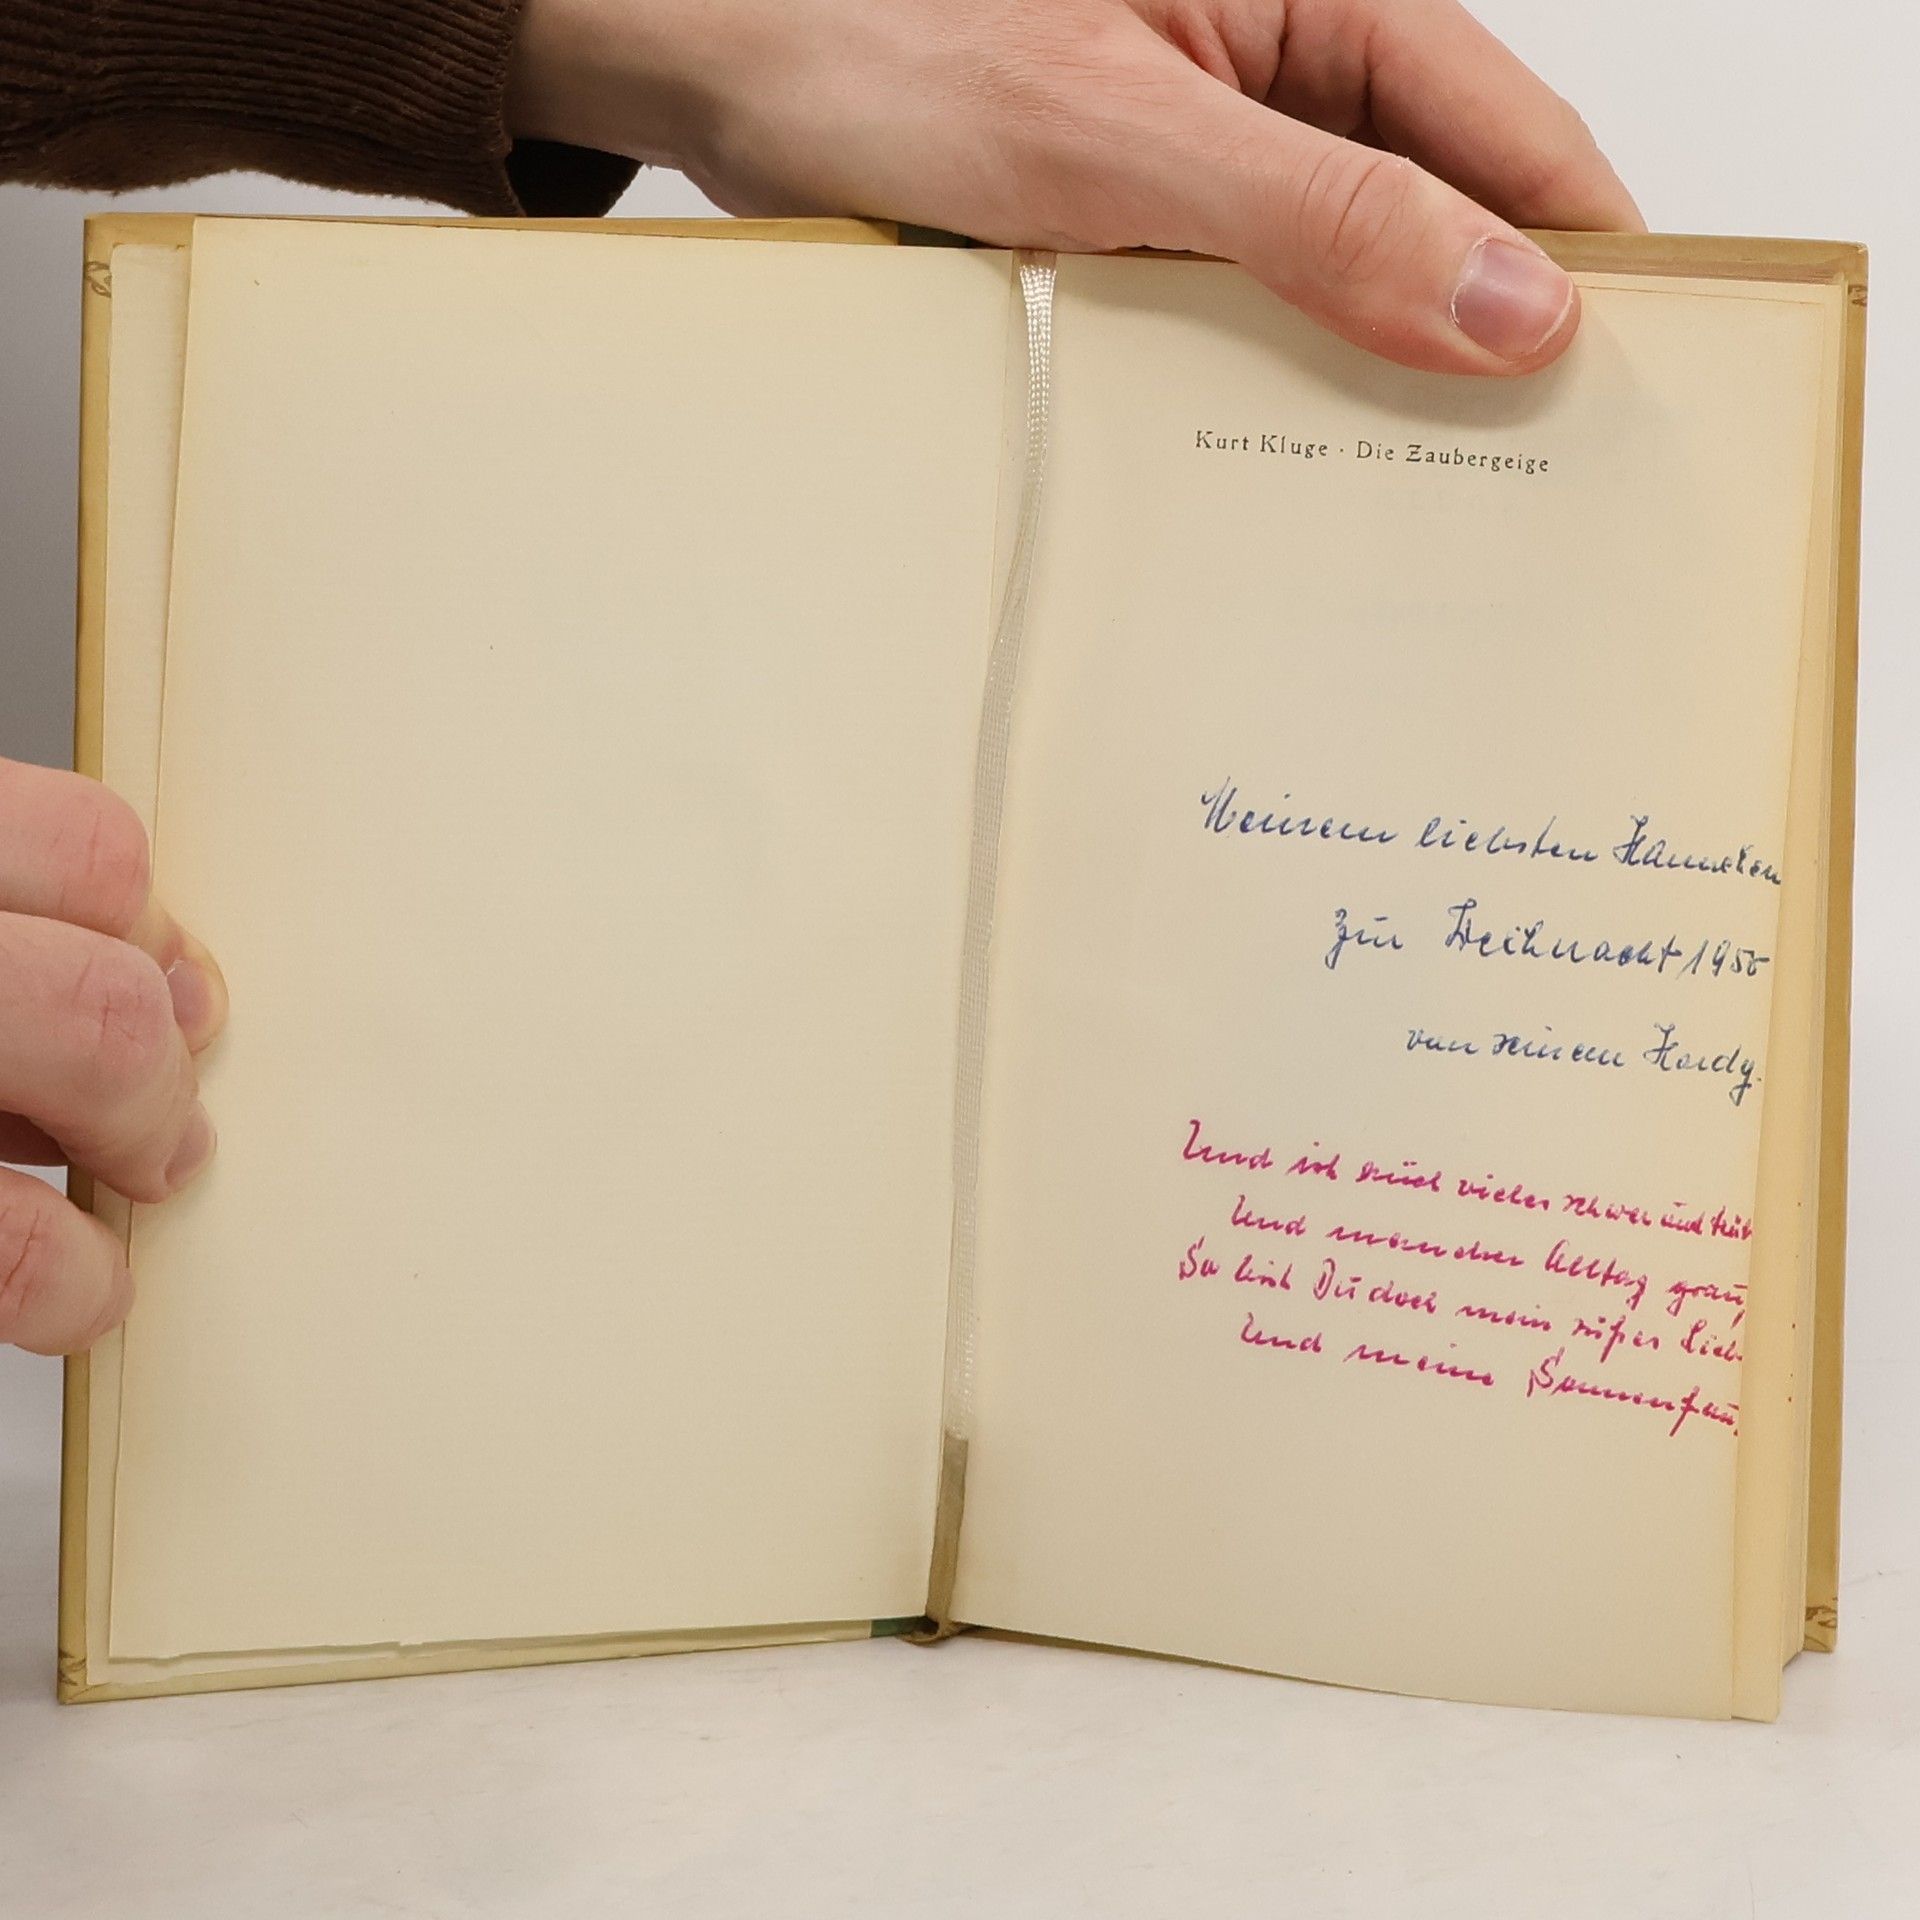 Kurt Kluge · Die Zaubergeige
Meinem liebsten Hanneken
zur Weihnacht 1950
von seinem Hardy.
Und ist auch vieles schwer und trüb
Und mancher Alltag grau,
So bist Du doch mein süßes Lieb
Und meine Sonnenfrau.